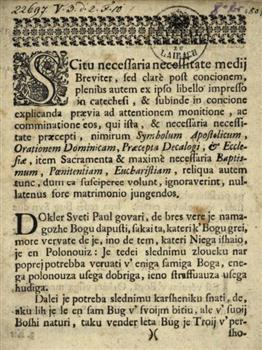 22697 V. 3. d. 2. F. 10
LAIBACH
SCitu necessaria necessitate medij
Breviter, sed clarè post concionem,
plenius autem ex ipso libello impresso
in catechesi, & subinde in concione
explicanda prævia ad attentionem monitione, ac
comminatione eos, qui ista, & necessaria necessi-
tate præcepti, nimirum Symbolum Apostolicum,
Orationem Dominicam, Præcepta Decalogi, & Eccle-
siæ, item Sacramenta & maximè necessaria Baptis-
mum, Pœnitentiam, Eucharistiam, reliqua autem
tunc, dum ea suscipere volunt, ignoraverint, nul-
latenus fore matrimonio jungendos.
DOkler Sveti Paul govari, de bres vere je nama-
gozhe Bogu dapusti, sakai ta, kateri k'Bogu grei,
more vervate de je, ino de tem, kateri Niega ishaio,
je en Polonouiz: Je tedei slednimu zloueku nar
poprej potrebba veruati v'eniga samiga Boga, ene-
ga polonouza usega dobriga, ieno straffiauza usega
hudiga.
Dalei je potreba slednimu karsheniku snati, de,
aku lih je le en sam Bug v'svojm bitiu, ale v'suoj
Boshi naturi, taku vender leta Bùg je Troij v'per-
sho-